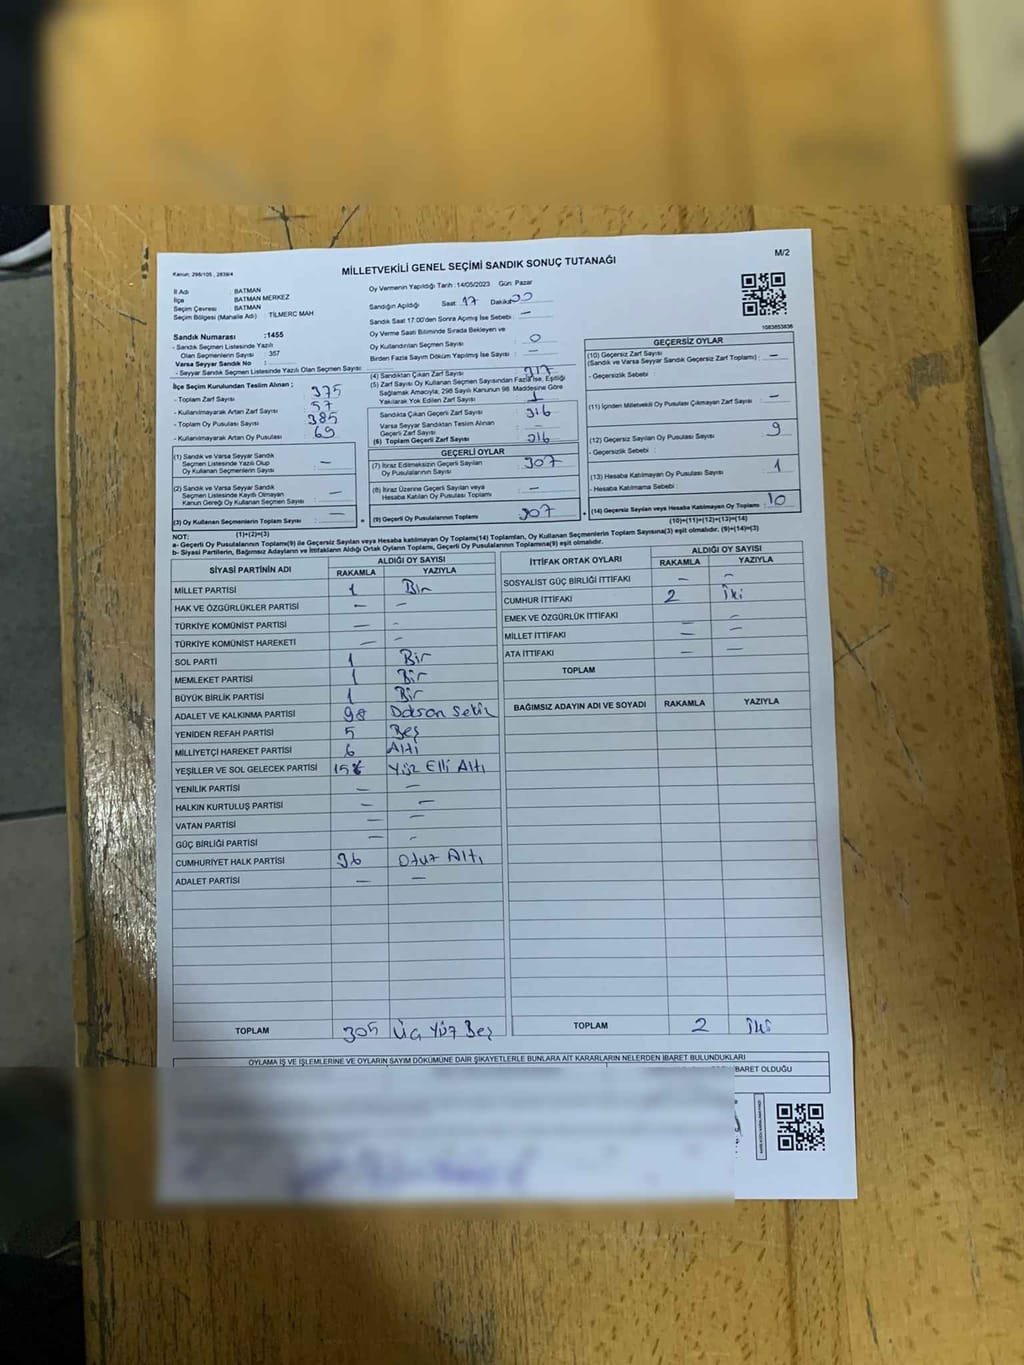 Kanun: 298/105 , 2839/4
MİLLETVEKİLİ GENEL SEÇİMİ SANDIK SONUÇ TUTANAĞI
M/2
İl Adı : BATMAN
İlçe BATMAN MERKEZ
Seçim Çevresi : BATMAN
Seçim Bölgesi (Mahalle Adı) : TİLMERC MAH
Sandık Numarası :1455
- Sandık Seçmen Listesinde Yazılı
Olan Seçmenlerin Sayısı : 357
Varsa Seyyar Sandık No :
- Seyyar Sandık Seçmen Listesinde Yazılı Olan Seçmen Sayısı
İlçe Seçim Kurulundan Teslim Alınan ;
- Toplam Zarf Sayısı : 375
- Kullanılmayarak Artan Zarf Sayısı : 57
- Toplam Oy Pusulası Sayısı : 385
- Kullanılmayarak Artan Oy Pusulası : 69
(1) Sandık ve Varsa Seyyar Sandık
Seçmen Listesinde Yazılı Olup
Oy Kullanan Seçmenlerin Sayısı : —
(2) Sandık ve Varsa Seyyar Sandık
Seçmen Listesinde Kayıtlı Olmayan
Kanun Gereği Oy Kullanan Seçmen Sayısı : —
(3) Oy Kullanan Seçmenlerin Toplam Sayısı : —
(1)+(2)=(3)
Oy Vermenin Yapıldığı Tarih :14/05/2023 Gün: Pazar
Sandığın Açıldığı Saat: 17 Dakika: 00
Sandık Saat 17:00'den Sonra Açılmış İse Sebebi : —
Oy Verme Saati Bitiminde Sırada Bekleyen ve
Oy Kullandırılan Seçmen Sayısı : 0
Birden Fazla Sayım Döküm Yapılmış İse Sayısı : —
(4) Sandıktan Çıkan Zarf Sayısı : 317
(5) Zarf Sayısı Oy Kullanan Seçmen Sayısından Fazla İse, Eşitliği
Sağlamak Amacıyla; 298 Sayılı Kanunun 98. Maddesine Göre
Yakılarak Yok Edilen Zarf Sayısı : 1
Sandıkta Çıkan Geçerli Zarf Sayısı : 316
Varsa Seyyar Sandıktan Teslim Alınan
Geçerli Zarf Sayısı : —
(6) Toplam Geçerli Zarf Sayısı : 316
GEÇERLİ OYLAR
(7) İtiraz Edilmeksizin Geçerli Sayılan
Oy Pusulalarının Sayısı : 307
(8) İtiraz Üzerine Geçerli Sayılan veya
Hesaba Katılan Oy Pusulası Toplamı : —
(9) Geçerli Oy Pusulalarının Toplamı : 307
1083853836
GEÇERSİZ OYLAR
(10) Geçersiz Zarf Sayısı
(Sandık ve Varsa Seyyar Sandık Geçersiz Zarf Toplamı) : —
- Geçersizlik Sebebi :
(11) İçinden Milletvekili Oy Pusulası Çıkmayan Zarf Sayısı : —
(12) Geçersiz Sayılan Oy Pusulası Sayısı : 9
- Geçersizlik Sebebi :
(13) Hesaba Katılmayan Oy Pusulası Sayısı : 1
- Hesaba Katılmama Sebebi :
(14) Geçersiz Sayılan veya Hesaba Katılmayan Oy Toplamı : 10
(10)+(11)+(12)+(13)=(14)
NOT:
a- Geçerli Oy Pusulalarının Toplamı(9) ile Geçersiz Sayılan veya Hesaba katılmayan Oy Toplamı(14) Toplamları, Oy Kullanan Seçmenlerin Toplam Sayısına(3) eşit olmalıdır. (9)+(14)=(3)
b- Siyasi Partilerin, Bağımsız Adayların ve İttifakların Aldığı Ortak Oyların Toplamı, Geçerli Oy Pusulalarının Toplamına(9) eşit olmalıdır.
SİYASİ PARTİNİN ADI ALDIĞI OY SAYISI
RAKAMLA YAZIYLA
MİLLET PARTİSİ 1 Bir
HAK VE ÖZGÜRLÜKLER PARTİSİ — —
TÜRKİYE KOMÜNİST PARTİSİ — —
TÜRKİYE KOMÜNİST HAREKETİ — —
SOL PARTİ 1 Bir
MEMLEKET PARTİSİ 1 Bir
BÜYÜK BİRLİK PARTİSİ 1 Bir
ADALET VE KALKINMA PARTİSİ 98 Doksan Sekiz
YENİDEN REFAH PARTİSİ 5 Beş
MİLLİYETÇİ HAREKET PARTİSİ 6 Altı
YEŞİLLER VE SOL GELECEK PARTİSİ 156 Yüz Elli Altı
YENİLİK PARTİSİ — —
HALKIN KURTULUŞ PARTİSİ — —
VATAN PARTİSİ — —
GÜÇ BİRLİĞİ PARTİSİ — —
CUMHURİYET HALK PARTİSİ 36 Otuz Altı
ADALET PARTİSİ — —
TOPLAM 305 Üç Yüz Beş
İTTİFAK ORTAK OYLARI ALDIĞI OY SAYISI
RAKAMLA YAZIYLA
SOSYALİST GÜÇ BİRLİĞİ İTTİFAKI — —
CUMHUR İTTİFAKI 2 İki
EMEK VE ÖZGÜRLÜK İTTİFAKI — —
MİLLET İTTİFAKI — —
ATA İTTİFAKI — —
TOPLAM
BAĞIMSIZ ADAYIN ADI VE SOYADI RAKAMLA YAZIYLA
TOPLAM 2 İki
OYLAMA İŞ VE İŞLEMLERİNE VE OYLARIN SAYIM DÖKÜMÜNE DAİR ŞİKAYETLERLE BUNLARA AİT KARARLARIN NELERDEN İBARET BULUNDUKLARI
İBARET OLDUĞU